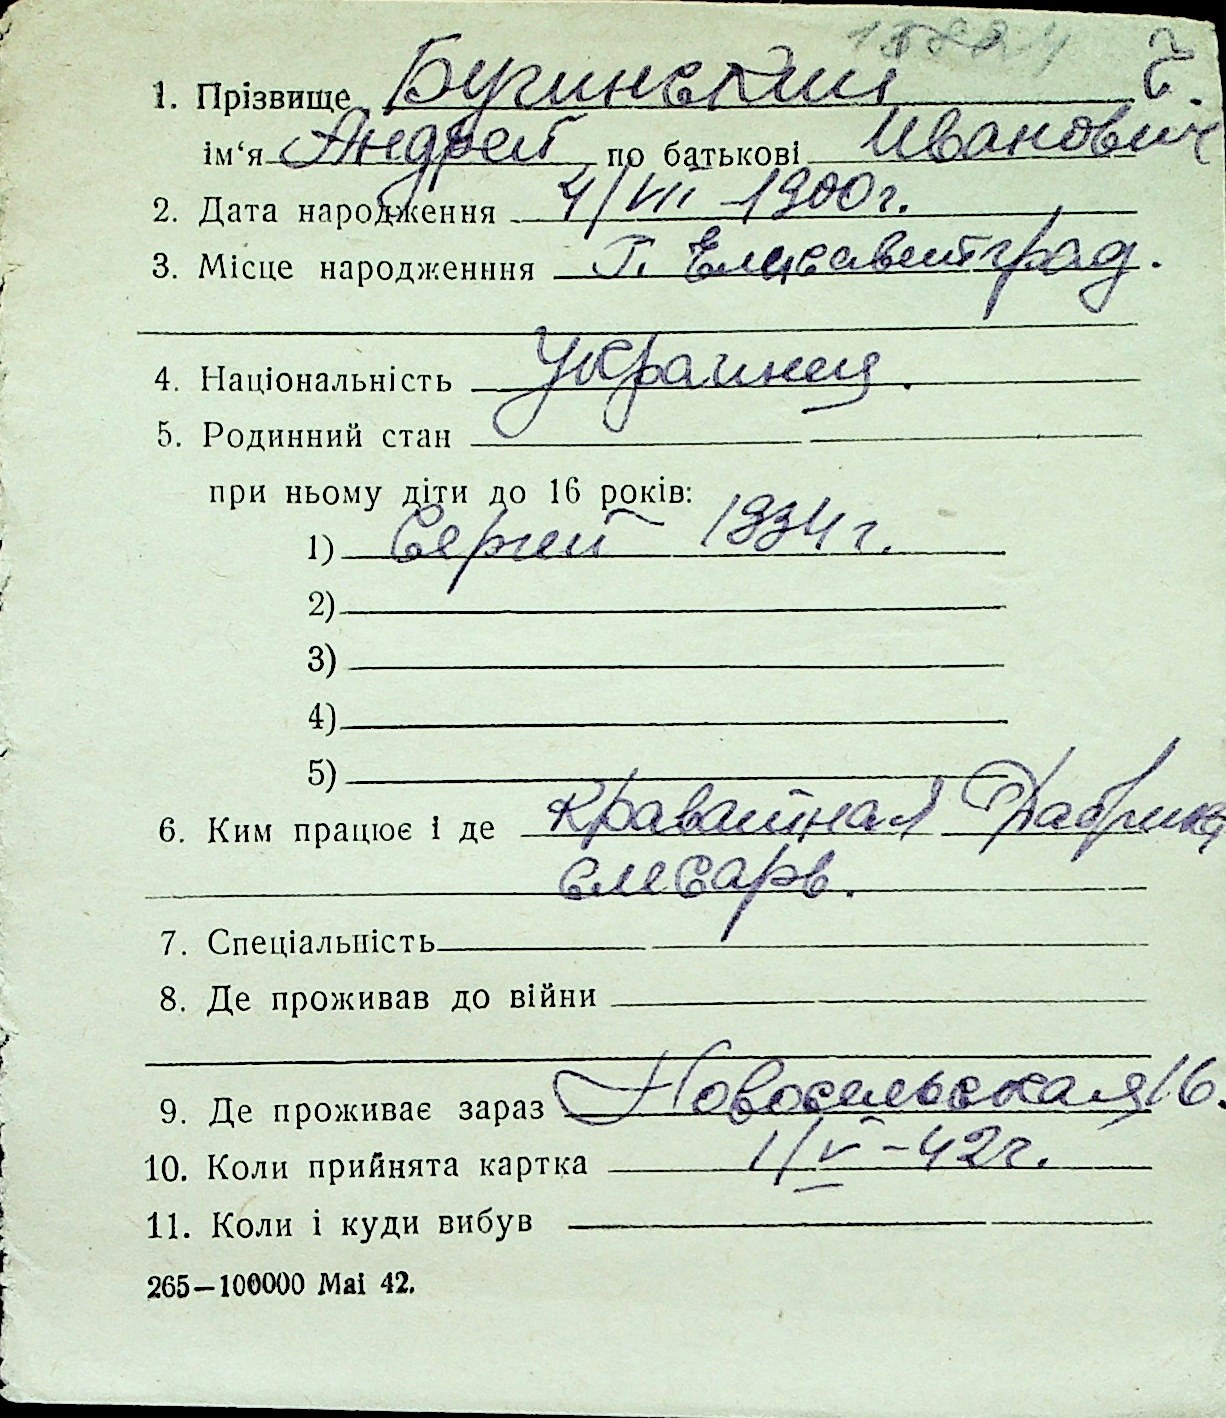 1. Прізвище Бугинский
ім‘я Андрей по батькові Иванович
2. Дата народження 4/VII 1900г.
3. Місце народженння Г. Елисаветград.
4. Національність Украинец.
5. Родинний стан
при ньому діти до 16 років:
1) Сергей 1934г.
2)
3)
4)
5)
6. Ким працює і де Краватная Фабрика
слесарь.
7. Спеціальність
8. Де проживав до війни
9. Де проживає зараз Новосельская 16.
10. Коли прийнята картка 1/V-42г.
11. Коли і куди вибув
265—100000 Mai 42.